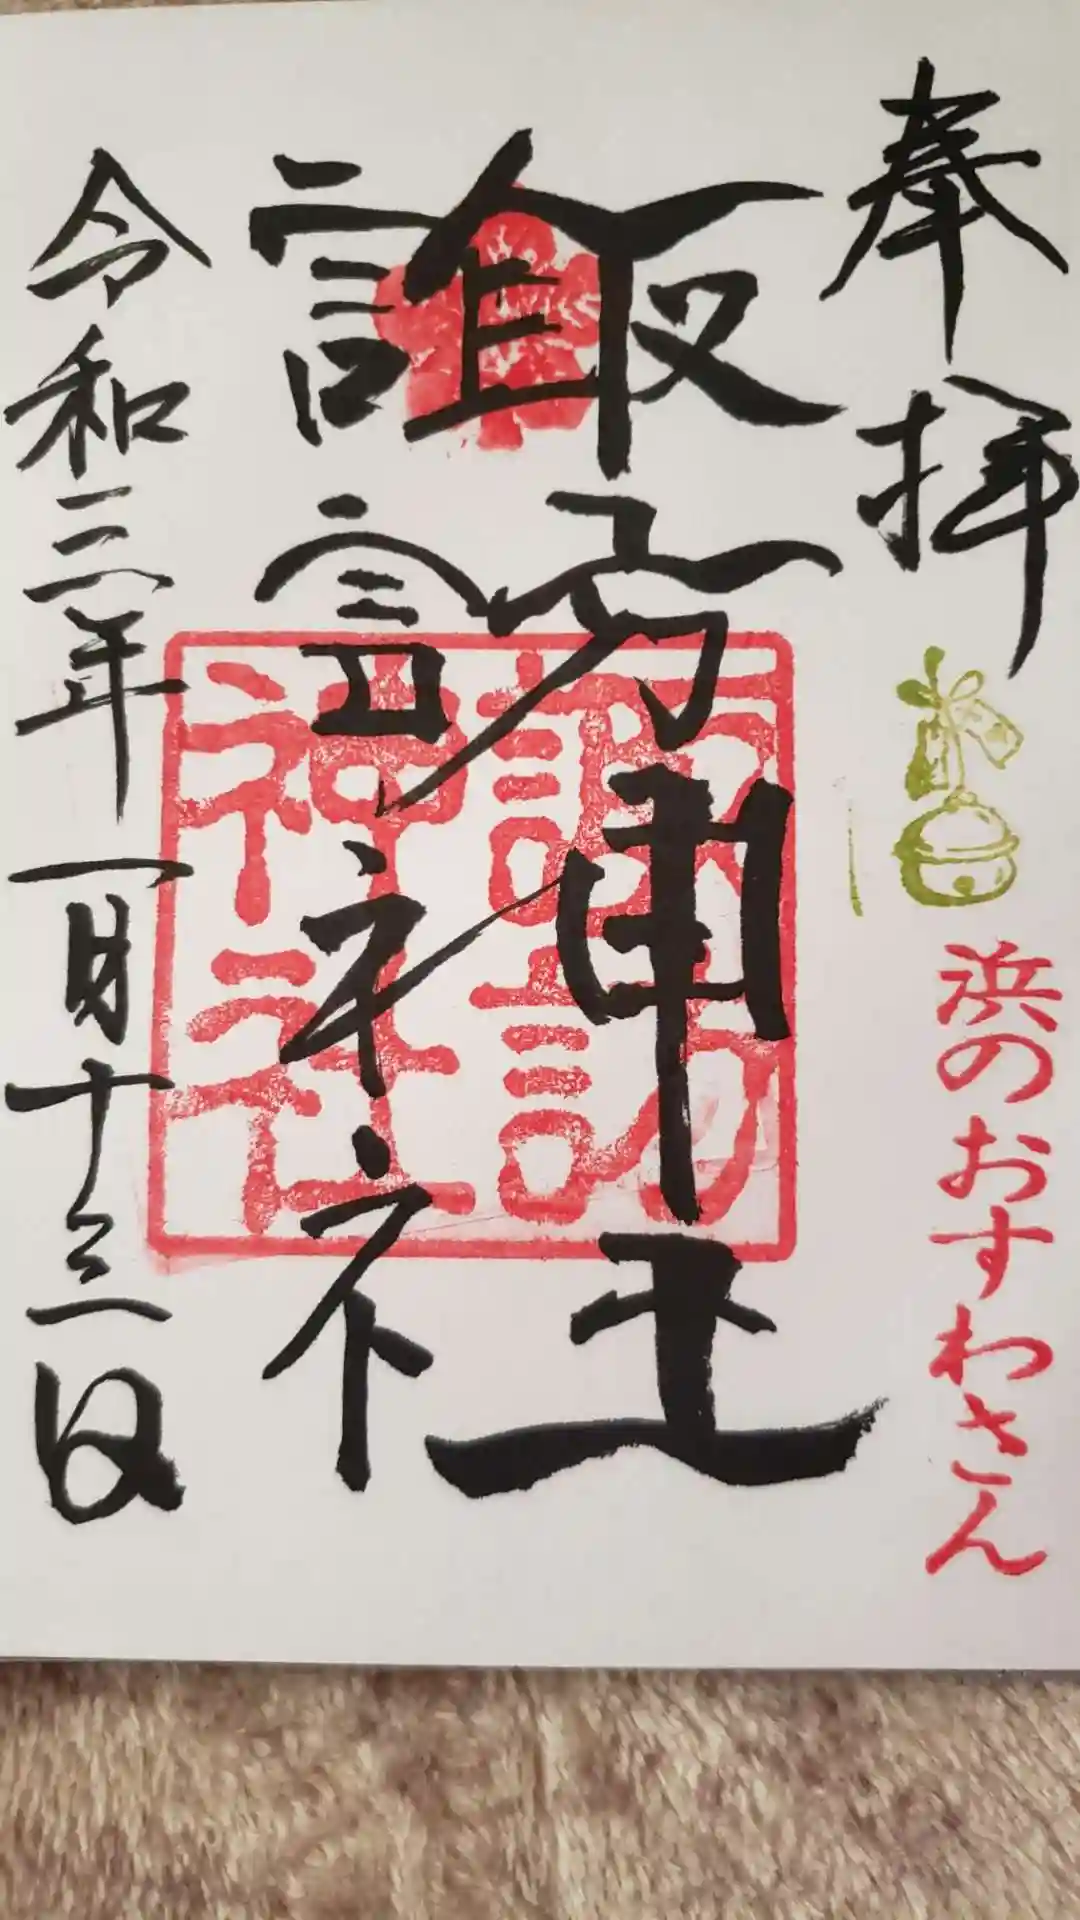 奉拝
浜のおすわさん
諏訪神社
諏訪神社
令和三年一月十三日